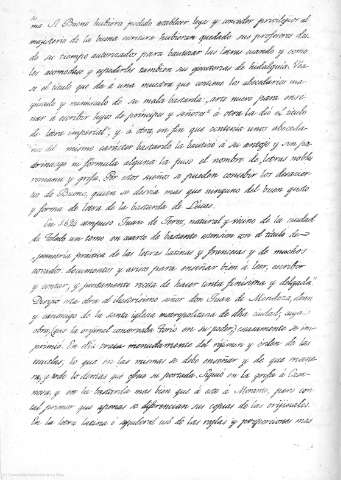 ma. Si Bueno hubiera podido establecer leyes y conceder privilegios al
magisterio de la buena escritura hubieran quedado sus profesores des-
de su tiempo autorizados para bautizar las letras cuando y como
les acomodase y ayudarles tambien sus egecutorias de hidalguia. Vea-
se el titulo que da à una muestra que contiene los abecedarios ma-
yusculo y minusculo de su mala bastarda: arte nuevo para ense-
ñar à escribir leyes de principes y señores: à otra la dio el titulo
de letra imperial; y à otra en fin que contenia unos abeceda-
rios del mismo caracter bastardo la bautizo à su antojo y sin pa-
drinazgo ni formula alguna la puso el nombre de letras nobles
romana y grifa. Por estos sueños se pueden concebir los
de Bueno, quien se desvia mas que ninguno del buen gusto
y forma de letra de la bastarda de Lucas.
En 1695 compuso Juan de Torres, natural y vecino de la ciudad
de Toledo un tomo en cuarto de bastante estension con el titulo de
practica de las letras latinas y francesas y de muchos
documentos y avisos para enseñar bien à leer, escribir
y contar, y juntamente receta de hacer tinta finisima y delgada"
Dirigio esta obra al ilustrisimo señor don Juan de Mendoza, dean
y canonigo de la santa iglesia metropolitana de dha ciudad, cuya
obra (que la original conservaba Torio en su poder) escasamente se im-
primió. En ella trata menudamente del regimen y orden de las
escuelas, lo que en las mismas se debe enseñar y de que mane-
ra, y todo lo demas que ofrece su portada. Siguió en la grifa à Casa-
nova, y en la bastarda mas bien que à este à Morante, pero con
tal primor que apenas se diferencian sus copias de los originales.
En la letra latina o agustina usó de las reglas y proporciones mas